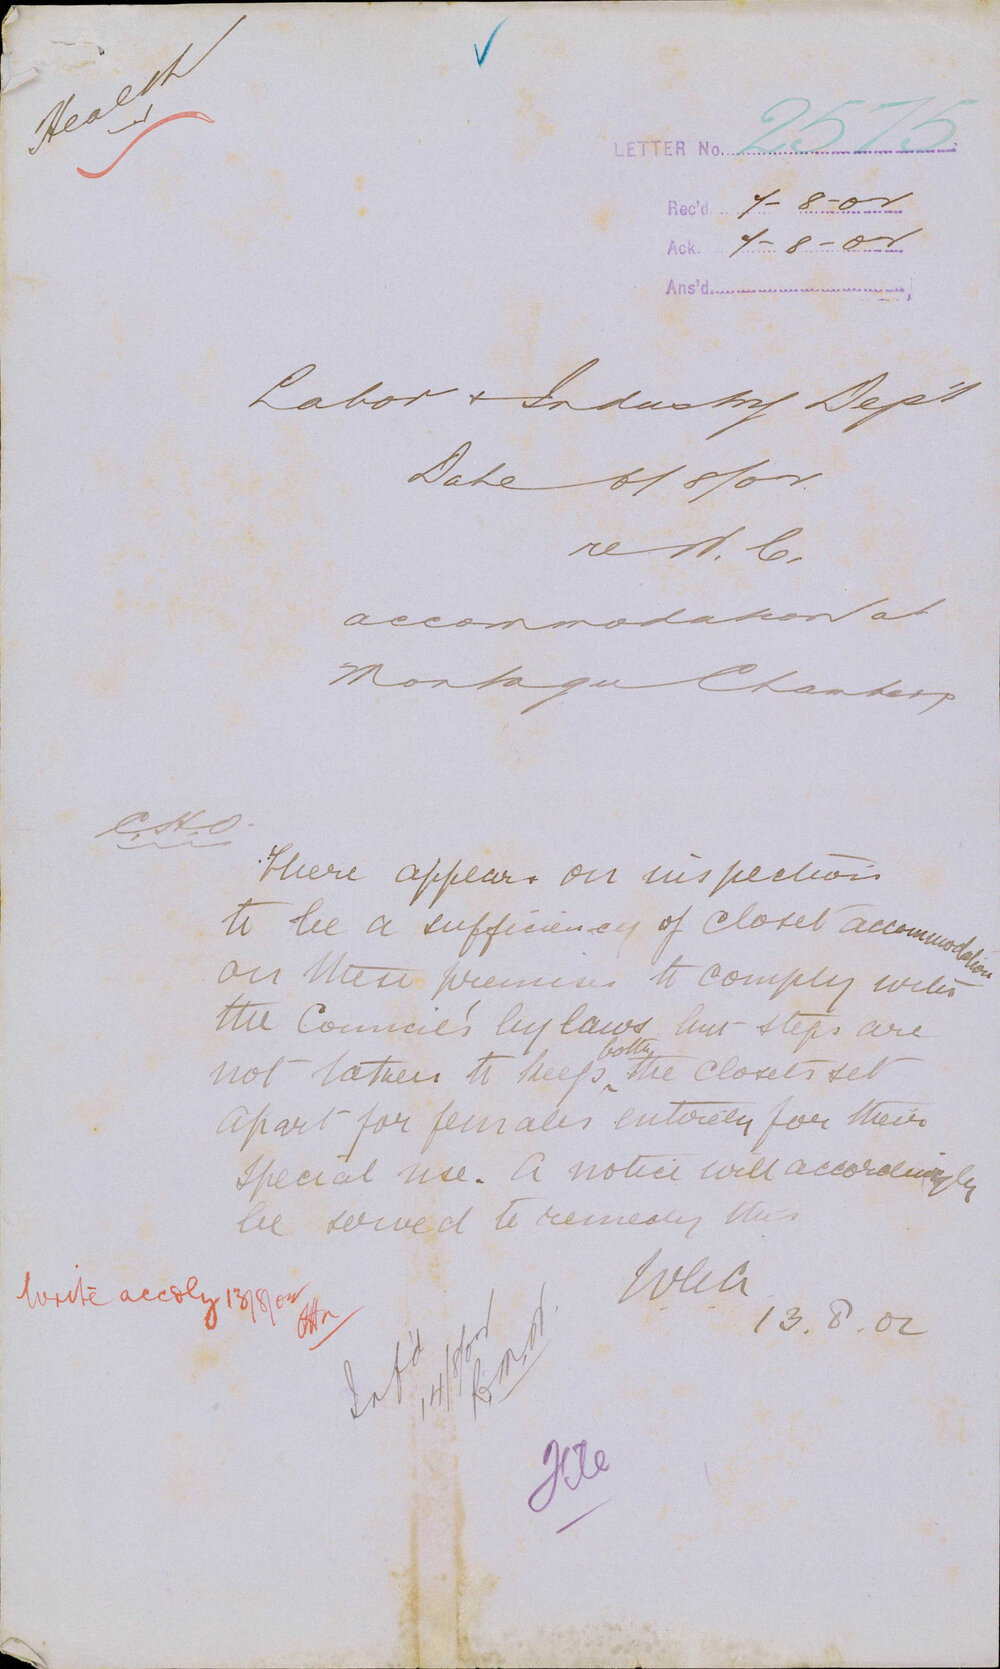 Health
LETTER No. 2575
Rec'd 7-8-02
Ack. 7-8-02
Ans'd.
Labor & Industry Dep't
Date 6/8/02
re W. C.
accommodation at
Montague Chambers
C.H.O.
There appears on inspection
to be a sufficiency of closet accommodation
on these premises to comply with
the Council's bylaws but steps are
not taken to keep the closets set
apart for females entirely for their
special use. A notice will accordingly
be served to remedy this
13.8.02
Write accdly 13/8/02
Inf'd
14/8/02
File